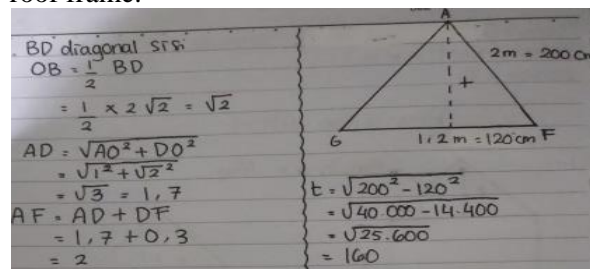 roof frame.
BD diagonal sisi
OB = 1/2 BD
= 1/2 × 2 √2 = √2
AD = √AO² + DO²
= √1² + √2²
= √3 = 1,7
AF = AD + DF
= 1,7 + 0,3
= 2
A
2m = 200 cm
t
G
1,2 m = 120 cm F
t = √200² - 120²
= √40.000 - 14.400
= √25.600
= 160